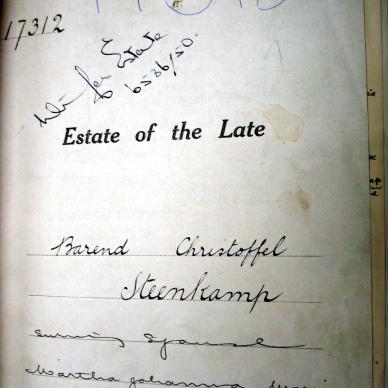 17312
Estate
6586/50.
Estate of the Late
Barend Christoffel
Steenkamp
Surviving Spouse
Martha Johanna